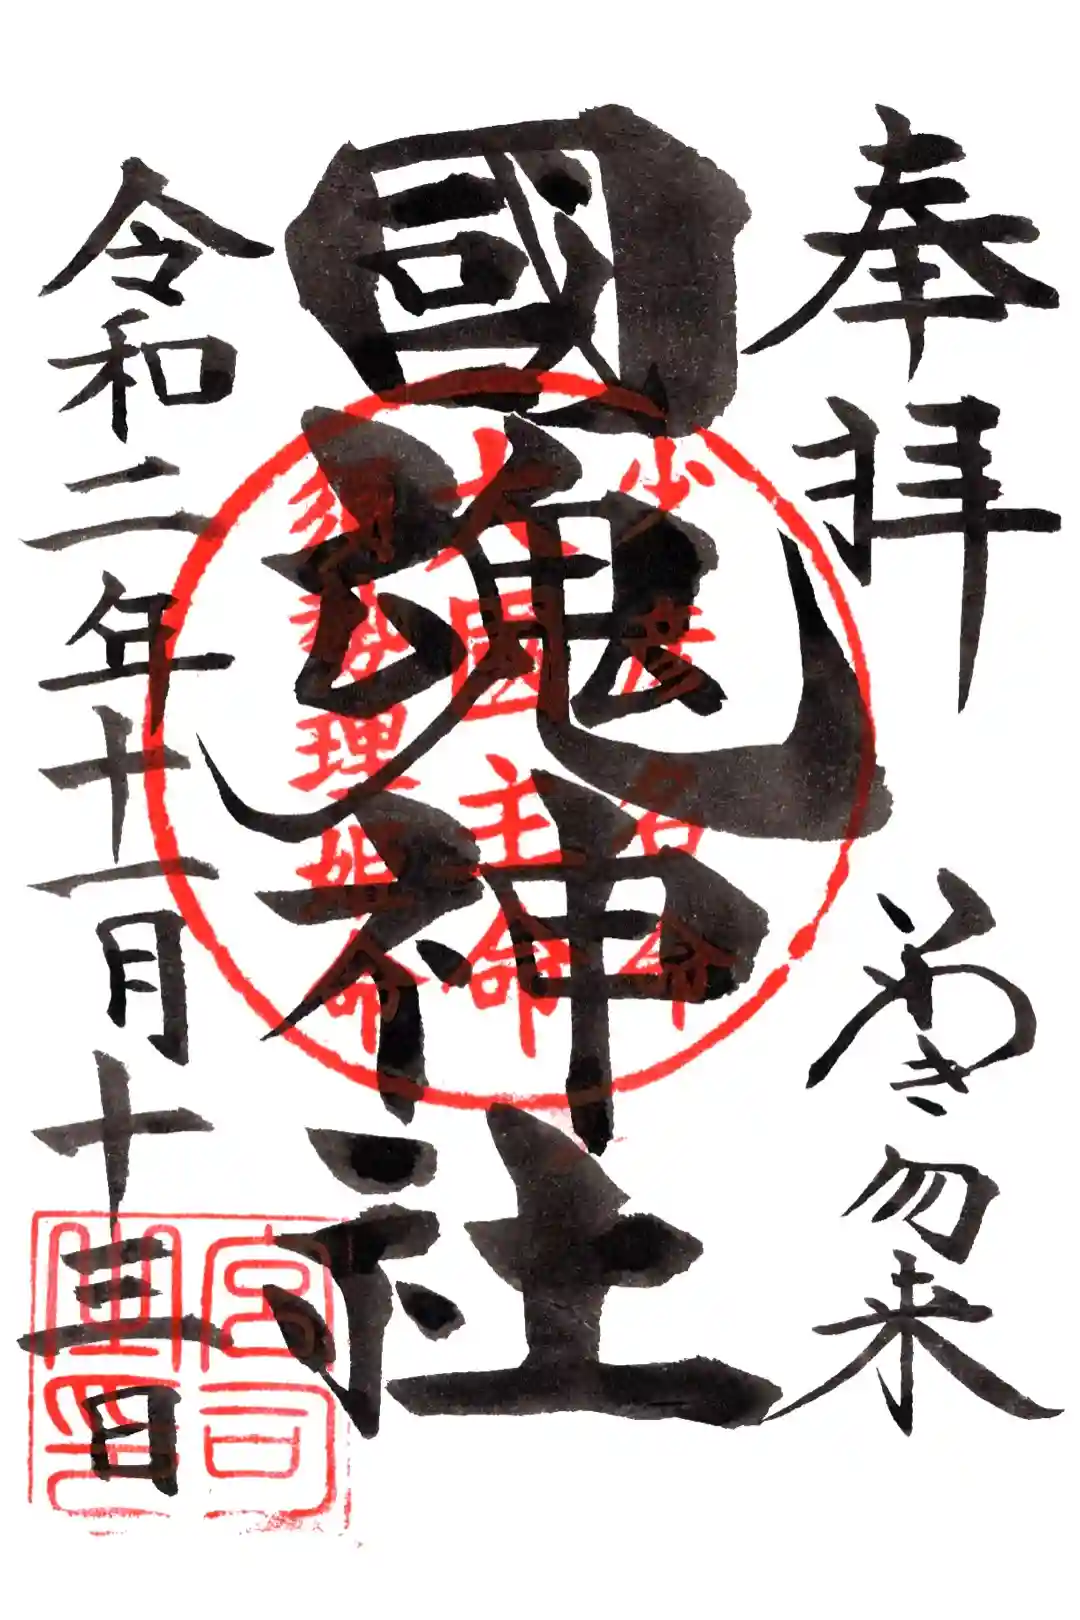 奉拝 いわき勿来
國魂神社
令和二年十一月十三日
少彦名命
大國主命
須勢理姫命
宮司
之印